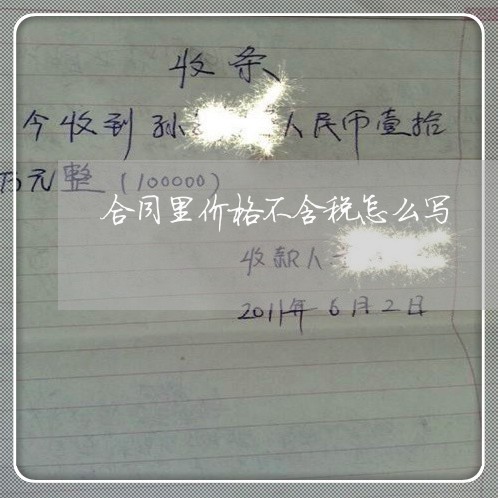 收条
今收到孙 人民币壹拾
万元整（100000）
合同里价格不含税怎么写
收款人
2011年6月2日